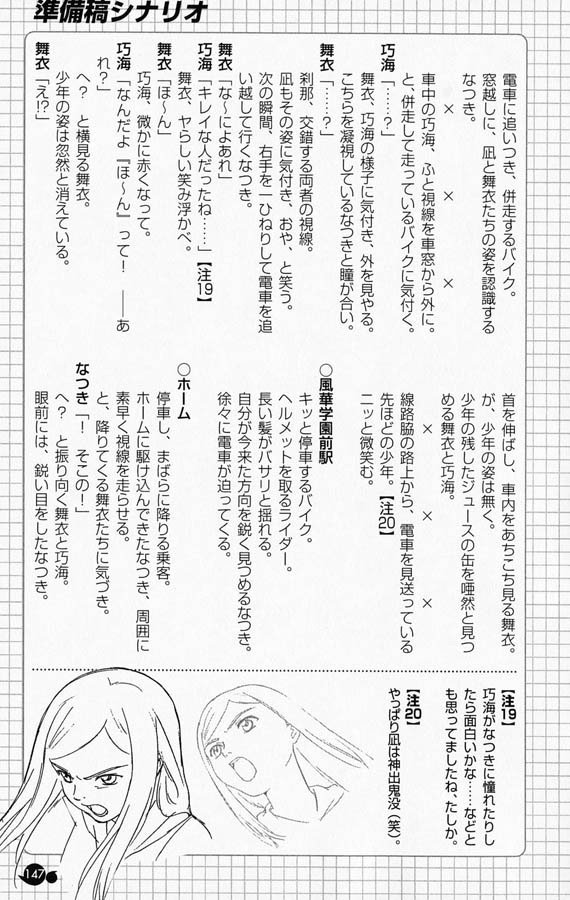 準備稿シナリオ
電車に追いつき、併走するバイク。
窓越しに、凪と舞衣たちの姿を認識する
なつき。
× × ×
車中の巧海、ふと視線を車窓から外に。
と、併走して走っているバイクに気付く。
巧海「……?」
舞衣、巧海の様子に気付き、外を見やる。
こちらを凝視しているなつきと瞳が合い。
舞衣「……?」
刹那、交錯する両者の視線。
凪もその姿に気付き、おや、と笑う。
次の瞬間、右手を一ひねりして電車を追
い越して行くなつき。
舞衣「な〜によあれ」
巧海「キレイな人だったね……」【注19】
舞衣、ヤらしい笑み浮かべ。
舞衣「ほ〜ん」
巧海、微かに赤くなって。
巧海「なんだよ『ほ〜ん』って! ――あ
れ?」
へ? と横見る舞衣。
少年の姿は忽然と消えている。
舞衣「え!?」
首を伸ばし、車内をあちこち見る舞衣。
が、少年の姿は無く。
少年の残したジュースの缶を唖然と見つ
める舞衣と巧海。
× × ×
線路脇の路上から、電車を見送っている
先ほどの少年。【注20】
ニッと微笑む。
○風華学園前駅
キッと停車するバイク。
ヘルメットを取るライダー。
長い髪がバサリと揺れる。
自分が今来た方向を鋭く見つめるなつき。
徐々に電車が迫ってくる。
○ホーム
停車し、まばらに降りる乗客。
ホームに駆け込んできたなつき、周囲に
素早く視線を走らせる。
と、降りてくる舞衣たちに気づき。
なつき「! そこの!」
へ? と振り向く舞衣と巧海。
眼前には、鋭い目をしたなつき。
【注19】
巧海がなつきに憧れたりし
たら面白いかな……などと
も思ってましたね、たしか。
【注20】
やっぱり凪は神出鬼没(笑)。
147